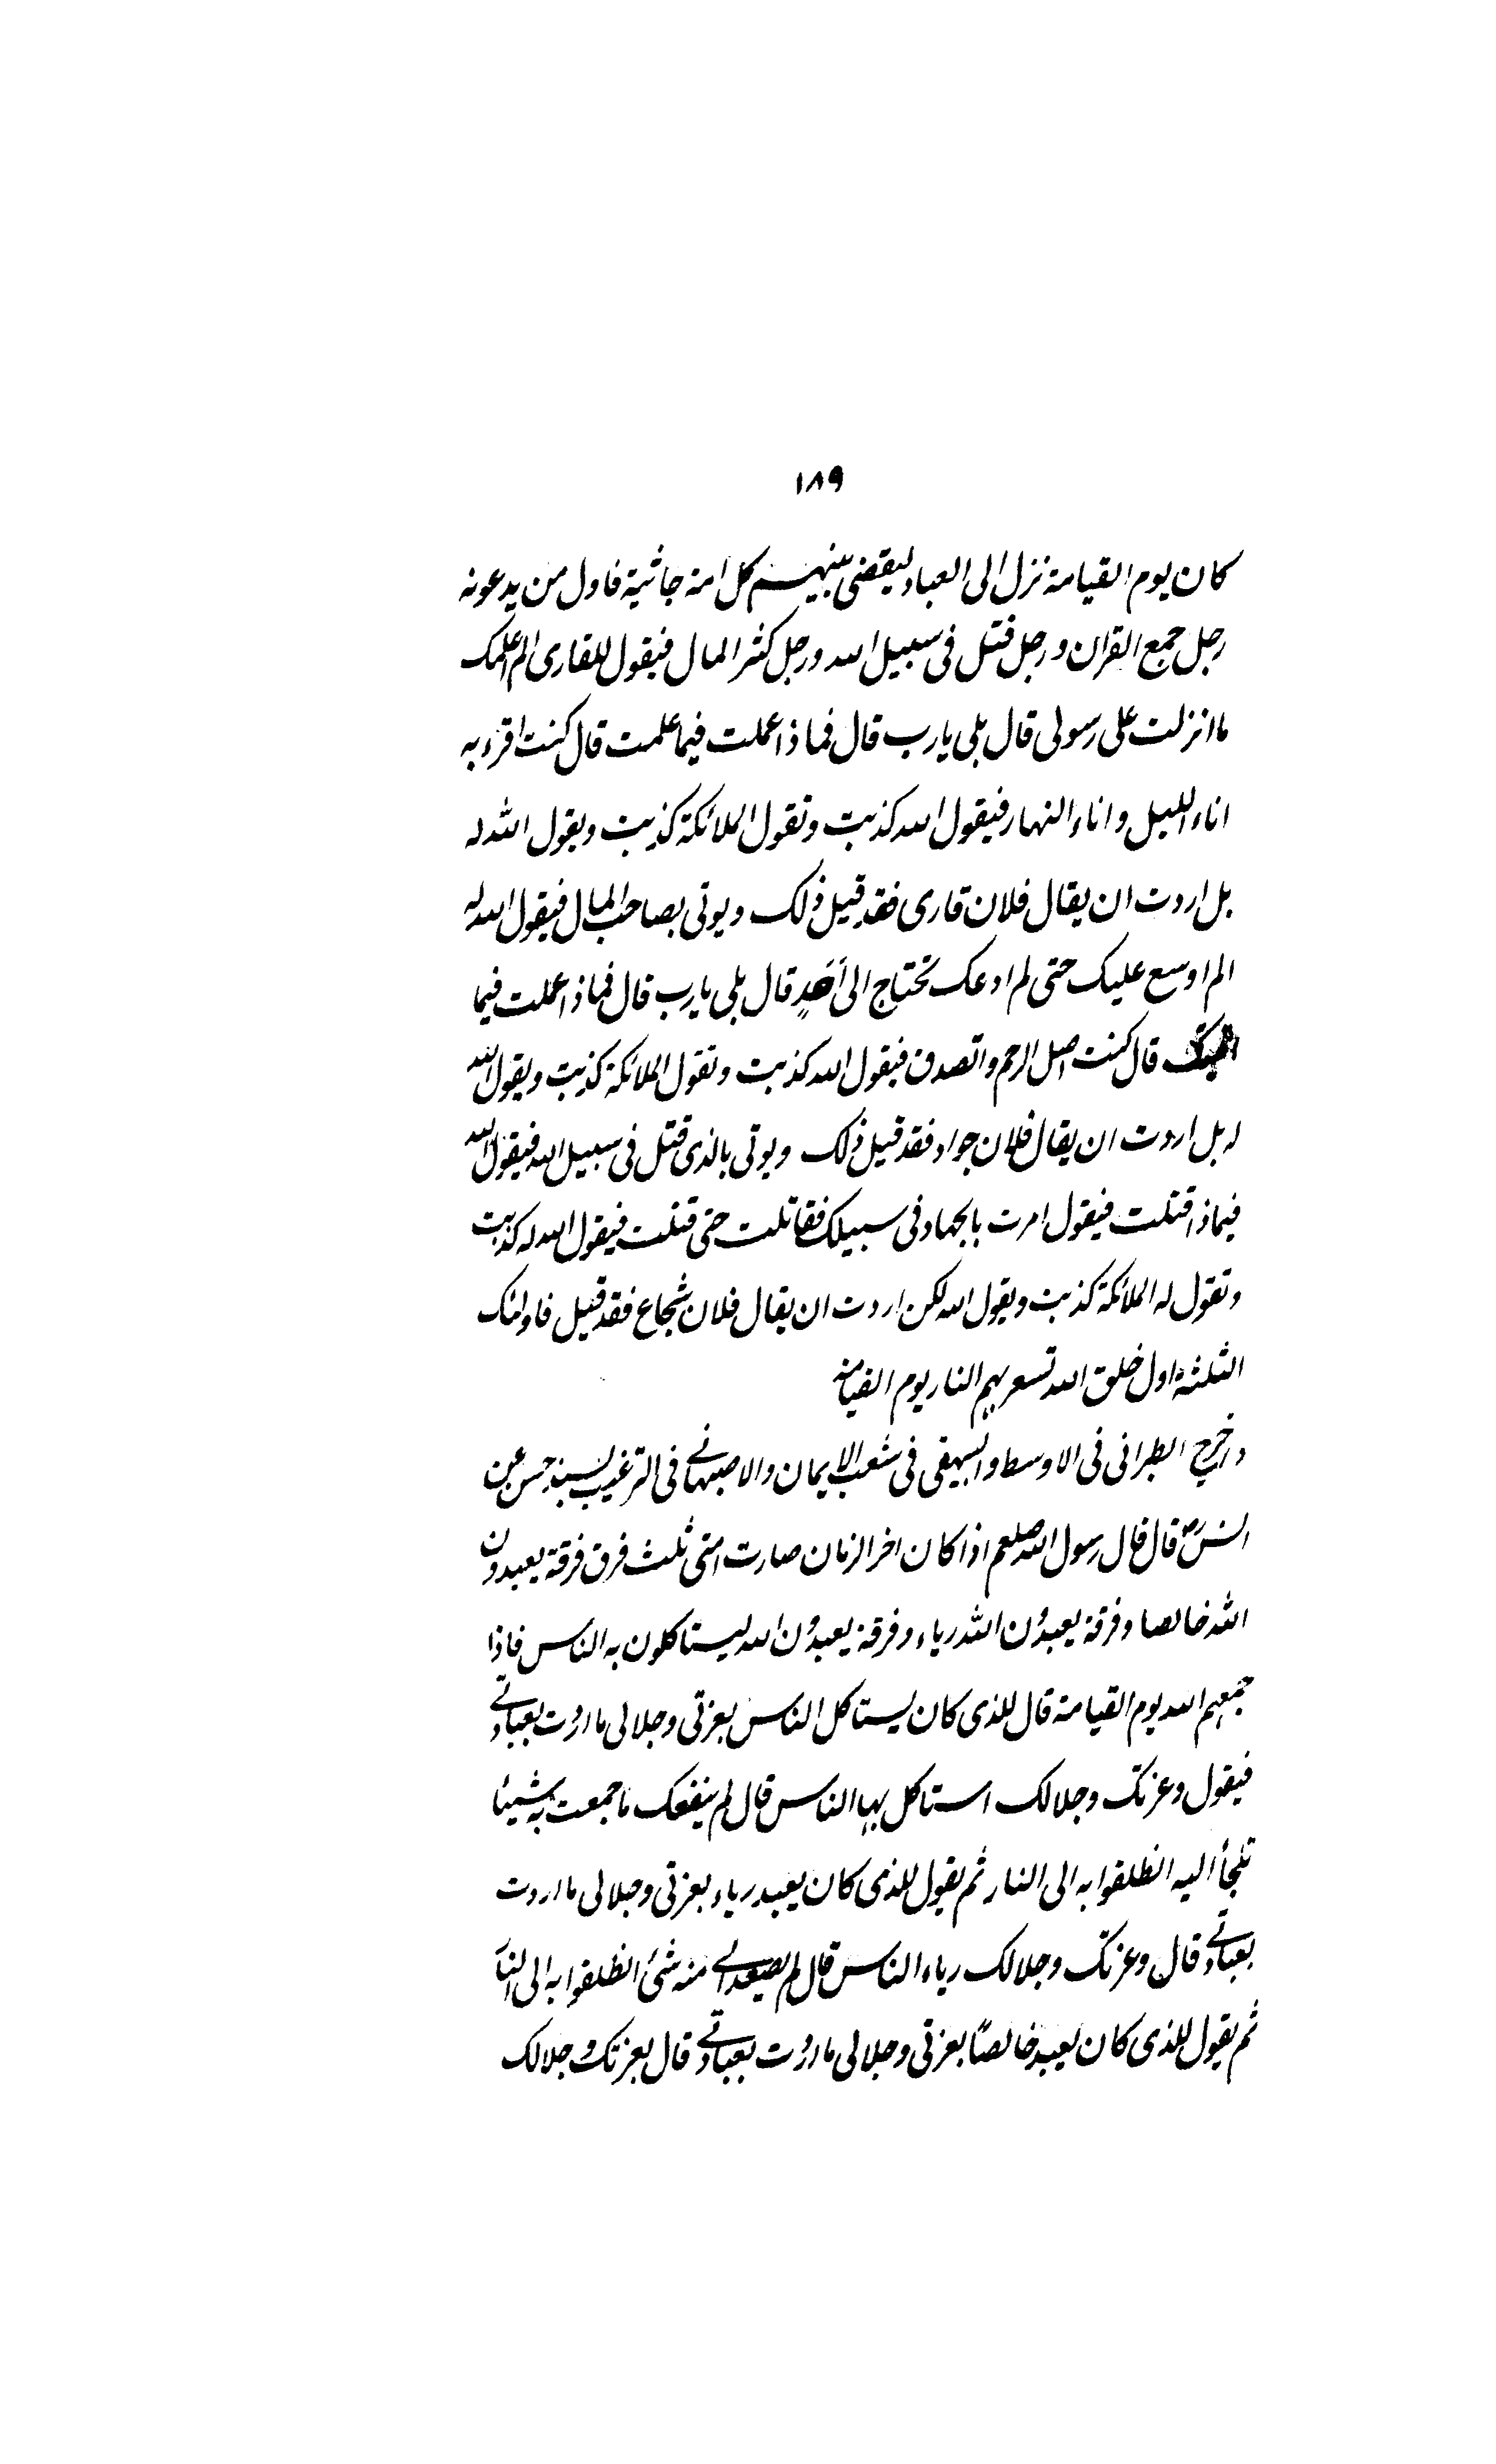 ۱۸۹
كان يوم القيامة نزل الى العباد ليقضى بينهم كل امة جاثية فاول من يدعونه
رجل جمع القران ورجل قتل فى سبيل الله ورجل كثر المال فيقول للقارى الم اعلمك
ما انزلت على رسولى قال بلى يارب قال فماذا عملت فيما علمت قال كنت اقرء به
اناء الليل واناء النهار فيقول الله كذبت وتقول الملائكة كذبت ويقول الله له
بل اردت ان يقال فلان قارى فقد قيل ذلک ويوتى بصاحب المال فيقول الله له
الم اوسع عليک حتى لم ادعک تحتاج الى اَحَدٍ قال بلى يارب قال فماذا عملت فيما
قال كنت اصل الرحم واتصدق فيقول الله كذبت وتقول الملائكة كذبت ويقول الله
له بل اردت ان يقال فلان جواد فقد قيل ذلک ويوتى بالذى قتل فى سبيل الله فيقول الله
فيماذا قتلت فيقول امرت بالجهاد فى سبيلک فقاتلت حتى قتلت فيقول الله له كذبت
وتقول له الملائكة كذبت ويقول الله لكن اردت ان يقال فلان شجاع فقد قيل فاولئک
الثلثة اول خلق الله تسعر بهم النار يوم القيامة
واخرج الطبرانى فى الاوسط والبيهقى فى شعب الايمان والاصبهانے فى الترغيب بسند حسن عن
انسؓ قال قال رسول الله صلعم اذا كان اخر الزمان صارت امتى ثلث فرق فرقة يعبدون
الله خالصا وفرقة يعبدون الله رياء وفرقة يعبدون الله ليستاكلون به الناس فاذا
جمعهم الله يوم القيامة قال للذى كان يستاكل الناس بعزتى وجلالى ما اردت بعبادتے
فيقول وعزتک وجلالک استاكل بها الناس قال لم ينفعک ما جمعت به شيئا
تلجأ اليه انطلقوا به الى النار ثم يقول للذى كان يعبد رياء بعزتى وجلالى ما اردت
بعبادتے قال وعزتک وجلالک رياء الناس قال لم يصعد الے منه شئ انطلقوا به الى النار
ثم يقول للذى كان يعبد خالصًا بعزتى وجلالى ما اردت بعبادتے قال بعزتک وجلالک